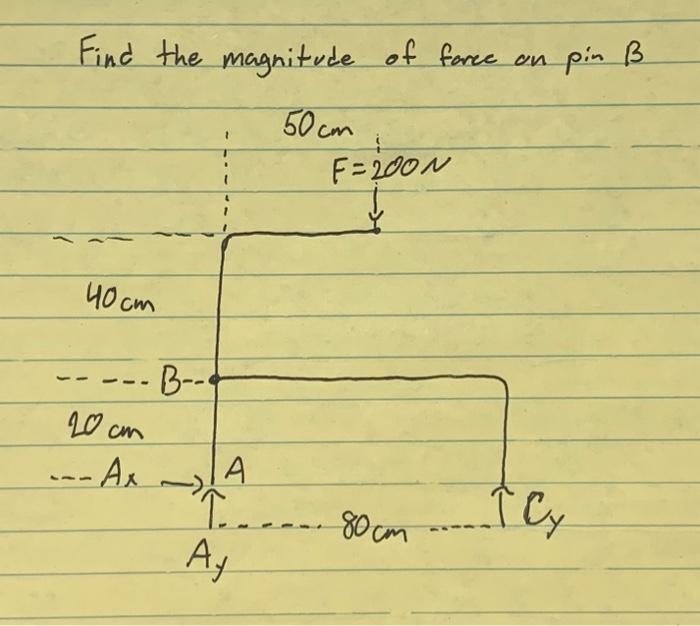 Find the magnitude of force on pin B
50 cm
F = 200 N
40 cm
B
20 cm
Ax
A
80 cm
Cy
Ay